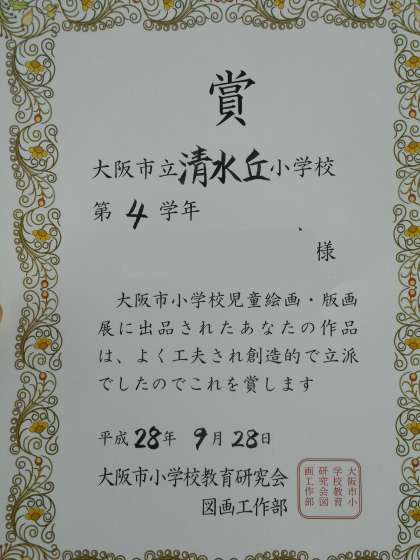 賞
大阪市立清水丘小学校
第4学年
様
大阪市小学校児童絵画・版画
展に出品されたあなたの作品
は、よく工夫され創造的で立派
でしたのでこれを賞します
平成28年9月28日
大阪市小学校教育研究会
図画工作部
大阪市小
学校教育
研究会図
画工作部